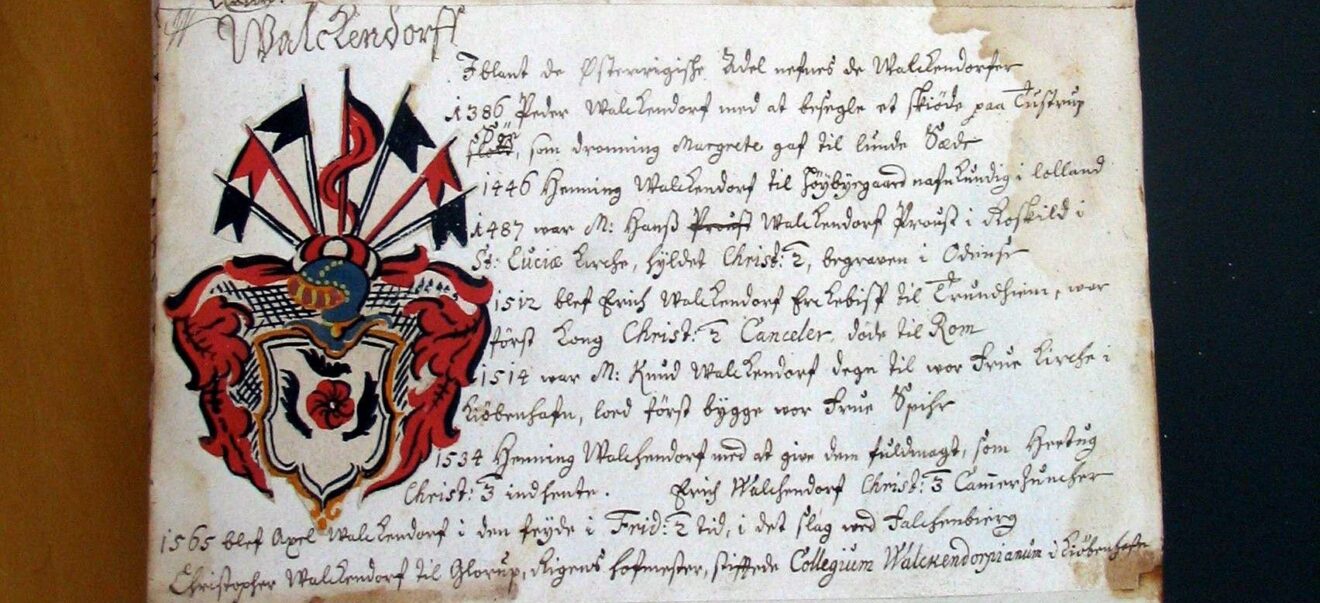 Walckendorff
Iblant de Østerrigishe Adel nefnes de Walckendorfer
1386 Peder Walckendorf med at besegle et skiøde paa Tustrup
som dronning Margrete gaf til lunde Sæde
1446 Henning Walckendorf til Høybyegaard nafnkundig i lolland
1487 war M: Hanß Proust Walckendorf Proust i Roskild i
St: Luciæ Kirche, hyldet Christ: 2, begraven i Odense
1512 blef Erich Walckendorf Erckebisp til Trundhiem, war
först Kong Christ: 2 Canceler, döde til Rom
1514 war M: Knud Walckendorf degn til wor Frue Kirche i
Kiöbenhafn, loed först bygge wor Frue Spihr
1534 Henning Walchendorf med at give dem fuldmagt, som Hertug
Christ: 3 indhente. Erich Walchendorf Christ: 3 Camerjuncher
1565 blef Axel Walckendorf i den feyde i Frid: 2 tid, i det slag wed Falchenbierg
Christopher Walckendorf til Glorup, Rigens hofmester, stiftede Collegium Walckendorpianum i Kiöbenhafn